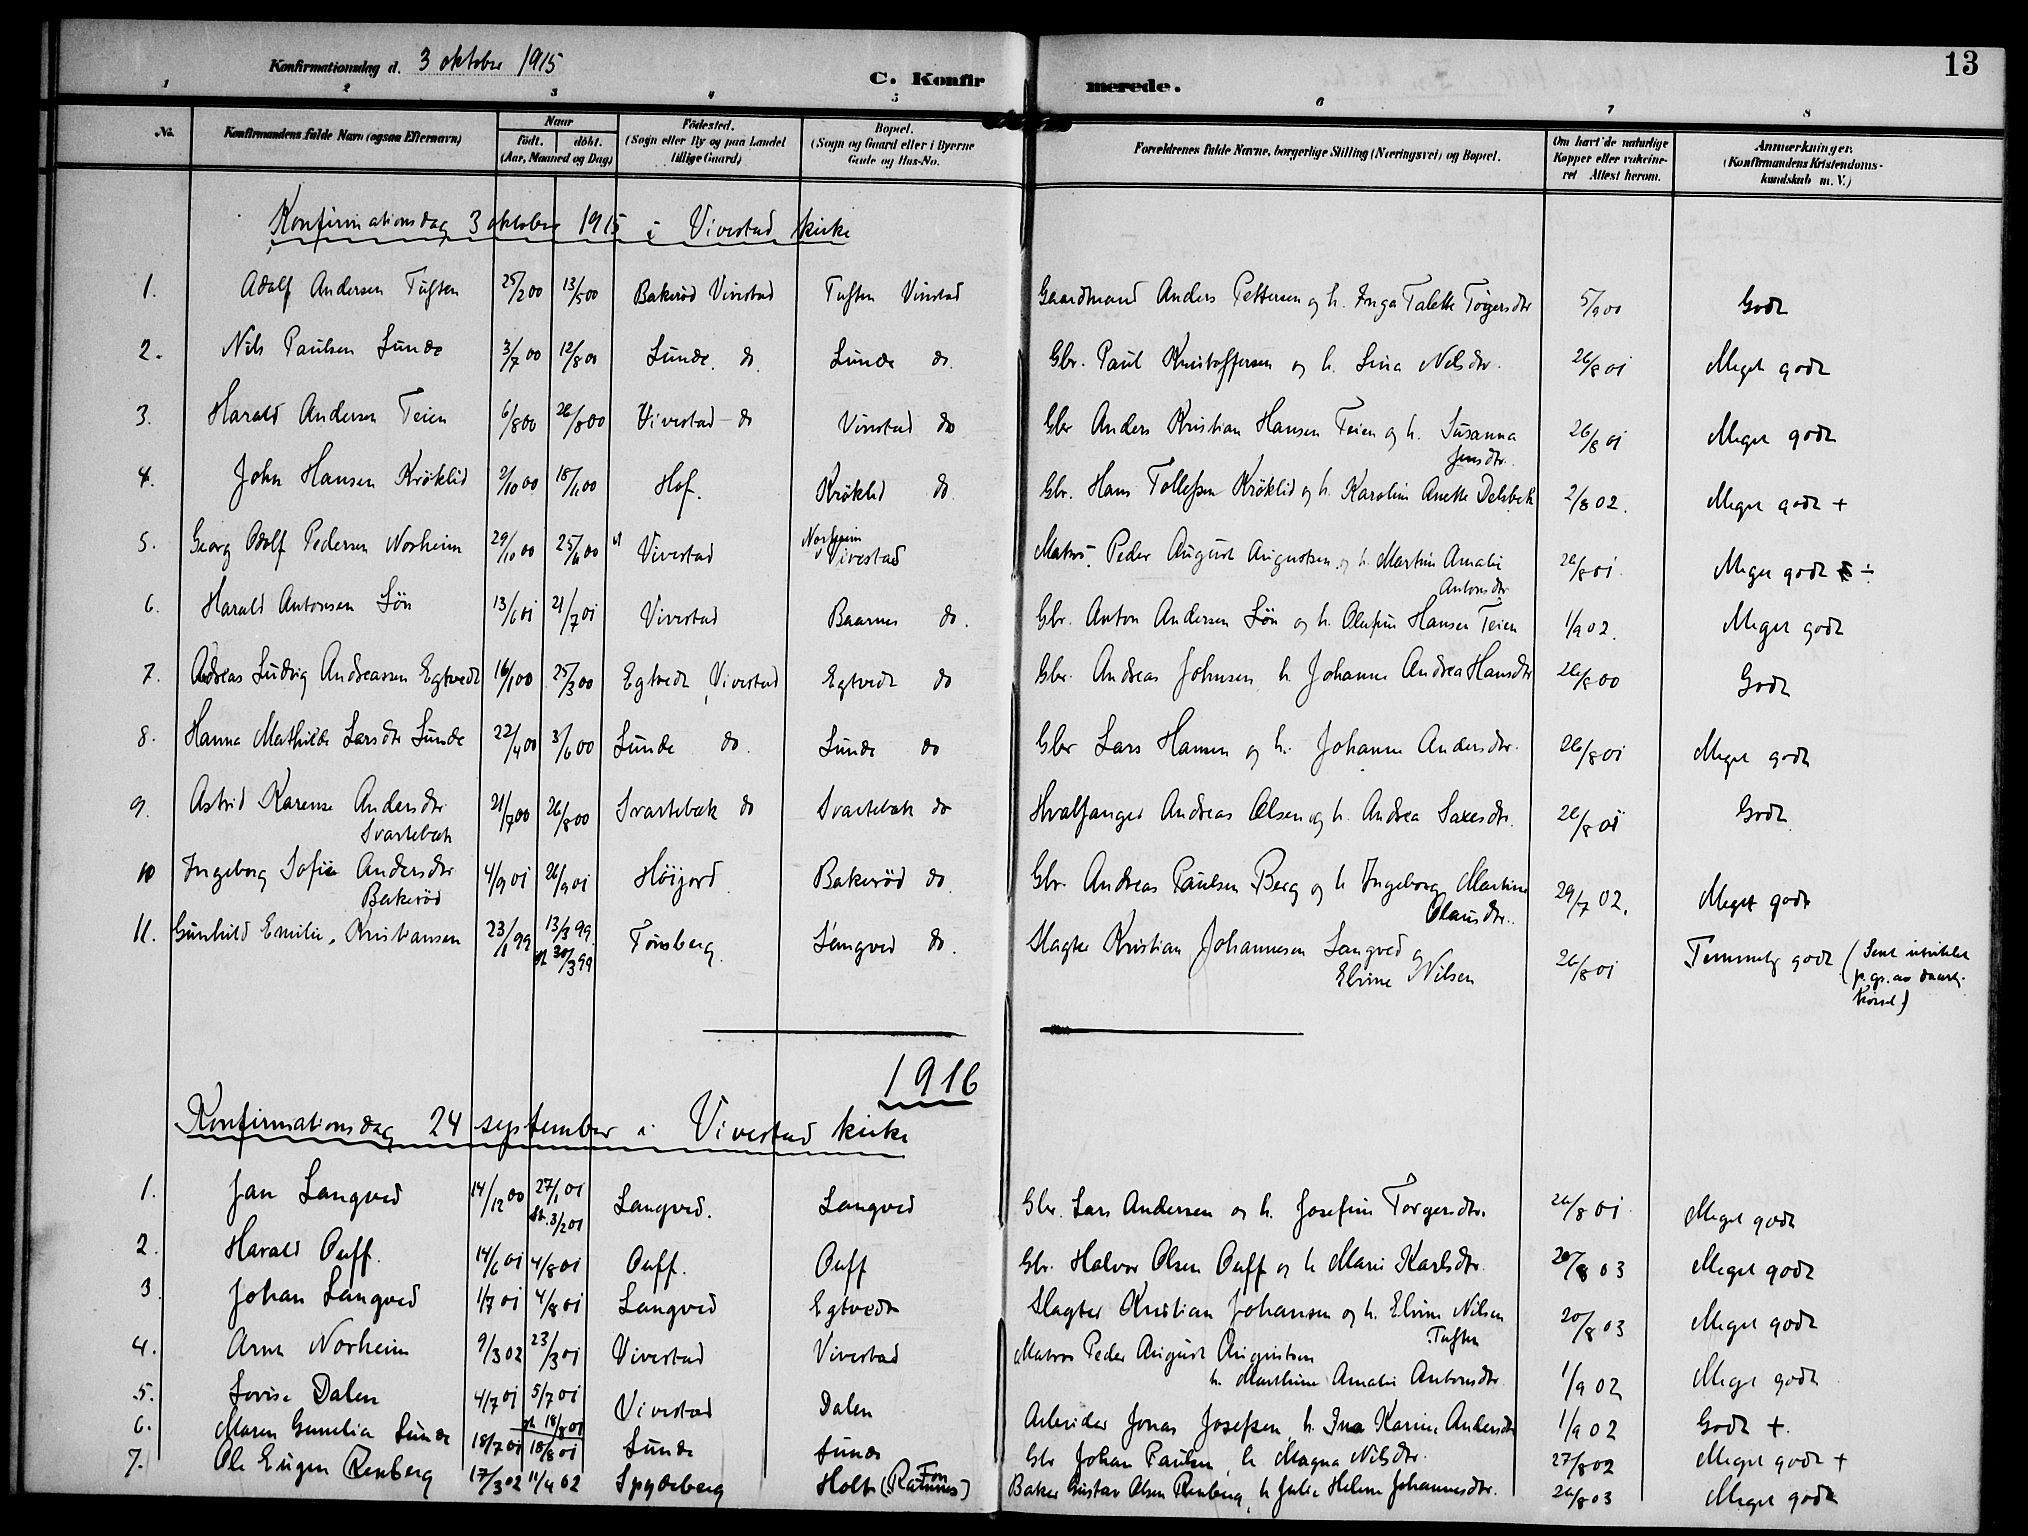 Konfirmationsdag d. 3 oktober 1915
C. Konfirmerede.
13
1 2 3 4 5 6 7 8
No. | Konfirmandens fulde Navn (ogsaa Efternavn) | Naar født. døbt. (Aar, Maaned og Dag) | Fødested. (Sogn eller By og paa Landet tillige Gaard) | Bopæl. (Sogn og Gaard eller i Byerne Gade og Hus-No. | Forældrenes fulde Navne, borgerlige Stilling (Næringsvei) og Bopæl. | Om havt de naturlige Kopper eller vakcineret Attest herom. | Anmærkninger. (Konfirmandens Kristendomskundskab m. V.)
Konfirmationsdag 3 oktober 1915 i Vivestad kirke
1. Adolf Andersen Tuften 25/2 00 13/5 00 Bakerød Vivestad Tuften Vivestad Gaardmand Anders Pettersen og h. Inga Talette 5/9 00 Godt
2. Nils Paulsen Lunde 3/7 00 12/8 00 Lunde. do. Lunde do. Gbr. Paul Kristoffersen og h. Lina Nilsdtr. 26/8 01 Meget godt
3. Harald Andersen Teien 6/8 00 26/8 00 Vivestad do Vivestad do Gbr Anders Kristian Hansen Teien og h. Susanna Jensdtr. 26/8 01 Meget godt
4. John Hansen Krøklid 2/10 00 18/11 00 Hof. Krøklid do. Gbr. Hans Tollefsen Krøklid og h. Karolin Anette 2/8 02. Meget godt +
5. Georg Adolf Pedersen Norheim 29/10 00 25/11 00 Vivestad Norheim Vivestad Matros. Peder August Augustsen og h. Martine Amalie Antonsdtr. 26/8 01. Meget godt ÷
6. Harald Antonsen Løn 13/6 01 21/7 01 Vivestad Baarnes do. Gbr. Anton Andersen Løn og h. Olufine Hansen Teien 1/9 02. Meget godt
7. Andreas Ludvig Andreassen Egtvedt 16/1 00 25/3 00 Egtvedt, Vivestad Egtvedt do Gbr. Andreas Johnsen h. Johanne Andrea Hansdtr 26/8 00 Godt
8. Hanna Mathilde Larsdtr Lunde 22/4 00 3/6 00 Lunde do. Lunde do Gbr Lars Hansen og h. Johanne Andersdtr. 26/8 01 Meget godt
9. Astrid Karense Andersdtr Svartebæk 21/7 00 26/8 00 Svartebæk do Svartebæk do Hvalfanger Andreas Olsen og h. Andrea Saxesdtr. 26/8 01 Godt
10 Ingeborg Sofie Andersdtr Bakerød 4/9 01 26/9 01 Høijord. Bakerød do. Gbr. Andreas Paulsen Berg og h Ingeborg Martine Olausdtr. 29/7 02. Meget godt
11. Gunhild Emilie Kristiansen 23/1 99 13/3 99. st 30/3 99 Tønsberg. Langved do. Slagter Kristian Johannesen Langved og Elvine Nilsen 26/8 01 Temmelig godt (Sent utviklet p. gr. av
1916
Konfirmationsdag 24 september i Vivestad kirke
1. Jan Langved 14/12 00 27/1 01 st. 3/2 01 Langved. Langved Gbr. Lars Andersen og h. Josefine Torgersdtr. 26/8 01 Meget godt
2. Harald Ouff. 14/6 01 4/8 01 Ouff. Ouff Gbr. Halvor Olsen Ouff og h Marie Karlsdtr. 20/8 03 Meget godt
3 Johan Langved 1/7 01 4/8 01 Langved Egtvedt Slagter Kristian Johansen og h. Elvine Nilsen Tuften 20/8 03 Meget godt
4. Arne Norheim 9/3 02 23/3 01 Vivestad Vivestad Matros Peder August Augustsen h. Marthine Amalie Antonsdtr. 1/9 02 Meget godt
5. Lovise Dalen 4/7 01 5/7 01 st 18/8 01 Vivestad Dalen Arbeider Jonas Josefsen, h. Ina Karine Andersdtr 1/9 02 Godt +.
6. Maren Gunelia Lunde 18/7 01 18/8 01 Lunde Lunde Gbr Johan Paulsen, h. Magna Nilsdtr. 27/8 02 Meget godt +
7. Ole Eugen Renberg 17/3 02 11/4 02 Spydeberg Holt Baker Gustav Olsen Renberg, h Julie Helene Johannesdtr. 26/8 03 Meget godt